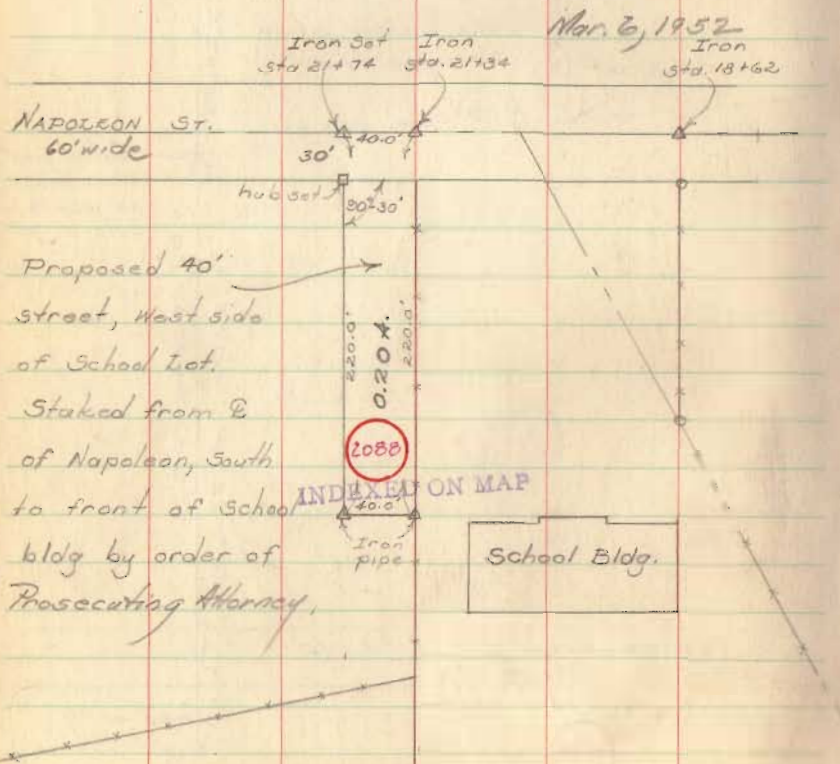 Mar. 6, 1952
Iron Set
sta 21+74
Iron
sta. 21+34
Iron
sta. 18+62
NAPOLEON ST.
60' wide
40.0'
30'
hub set
90°-30'
Proposed 40'
street, West side
of School Lot.
Staked from ℄
of Napoleon, South
to front of School
bldg by order of
Prosecuting Attorney.
220.0'
0.20 A.
220.0'
2088
INDEXED ON MAP
40.0'
Iron
pipe
School Bldg.